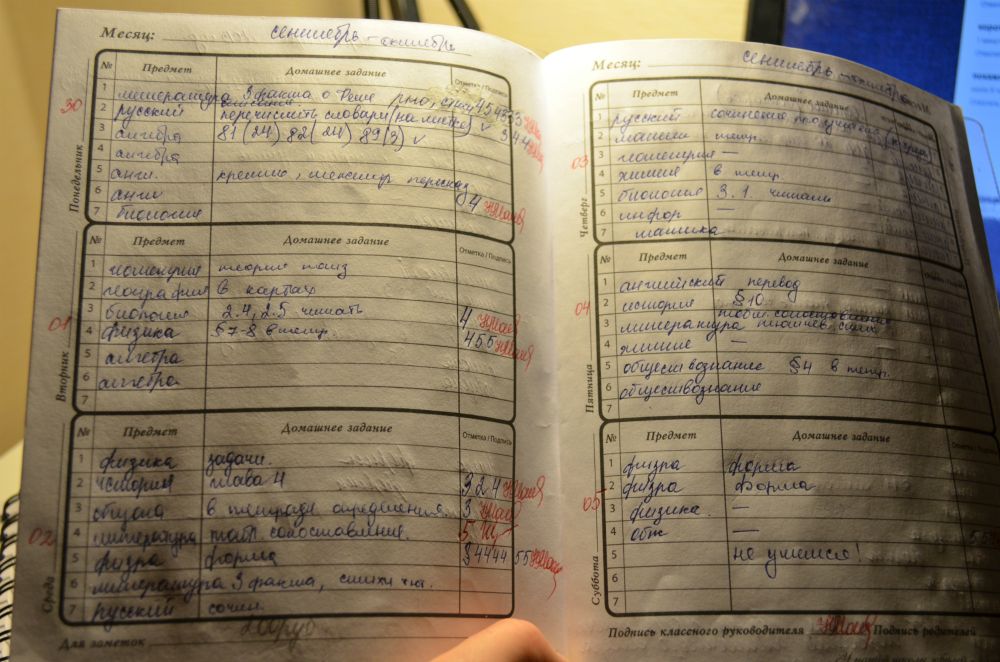 Месяц: сентябрь - октябрь
№ Предмет Домашнее задание Отметка / Подпись
30
Понедельник
1 литература 3 факта о Фете стихи 454533
2 русский перечислить словари (на листке) ✓ 344
3 алгебра 81(24) 82(24) 89(3) ✓
4 алгебра
5 англ.
6 англ 4
7 биология
№ Предмет Домашнее задание Отметка / Подпись
01
Вторник
1 геометрия теория
2 география в картах
3 биология 2.4, 2.5 читать 4
4 физика §7-8 в тетр. 455
5 алгебра
6 алгебра
7
№ Предмет Домашнее задание Отметка / Подпись
02
Среда
1 физика задачи.
2 история глава 4 324
3 в тетради определения. 3
4 литература табл. сопоставления. 5
5 физра форма 34444 55
6 литература 3 факта, стихи
7 русский сочин.
Для заметок
Месяц: сентябрь - октябрь
№ Предмет Домашнее задание
03
Четверг
1 русский сочинение про учителя
2 тетр.
3 геометрия —
4 химия в тетр
5 биология 3.1. читать
6 инфор —
7 матика
№ Предмет Домашнее задание
04
Пятница
1 английский перевод
2 история §10
табл. сопоставления
3 литература тютчев, стих
4 химия —
5 обществознание §4 в тетр.
6 обществознание
7
№ Предмет Домашнее задание
05
Суббота
1 физра форма
2 физра форма
3 физика —
4 обж —
5 не учимся!
6
7
Подпись классного руководителя Подпись родителей